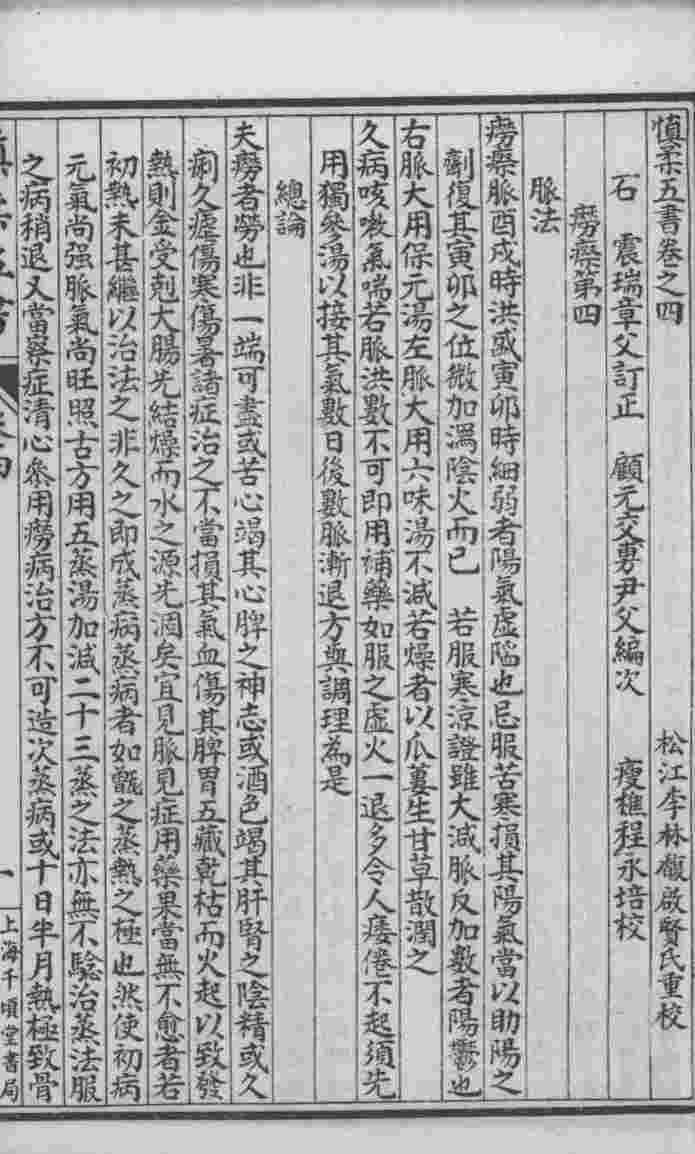 慎柔五書卷之四
松江李林馥啟賢氏重校
石　震瑞章父訂正　顧元交㝵尹父編次　瘦樵程永培校
癆瘵第四
脈法
癆瘵脈酉戌時洪盛寅卯時細弱者陽氣虛陷也忌服苦寒損其陽氣當以助陽之
劑復其寅卯之位微加瀉陰火而已　若服寒涼證雖大減脈反加數者陽鬱也
右脈大用保元湯左脈大用六味湯不減若燥者以瓜蔞生甘草散潤之
久病咳嗽氣喘若脈洪數不可即用補藥如服之虛火一退多令人痿倦不起須先
用獨參湯以接其氣數日後數脈漸退方與調理為是
總論
夫癆者勞也非一端可盡或苦心竭其心脾之神志或酒色竭其肝腎之陰精或久
痢久瘧傷寒傷暑諸症治之不當損其氣血傷其脾胃五藏乾枯而火起以致發
熱則金受剋大腸先結燥而水之源先涸矣宜見脈見症用藥果當無不愈者若
初熱未甚繼以治法之非久之即成蒸病蒸病者如甑之蒸熱之極也然使初病
元氣尚强脈氣尚旺照古方用五蒸湯加減二十三蒸之法亦無不驗治蒸法服
之病稍退又當察症清心參用癆病治方不可造次蒸病或十日半月熱極致骨
慎柔五書
卷四
一
上海千頃堂書局